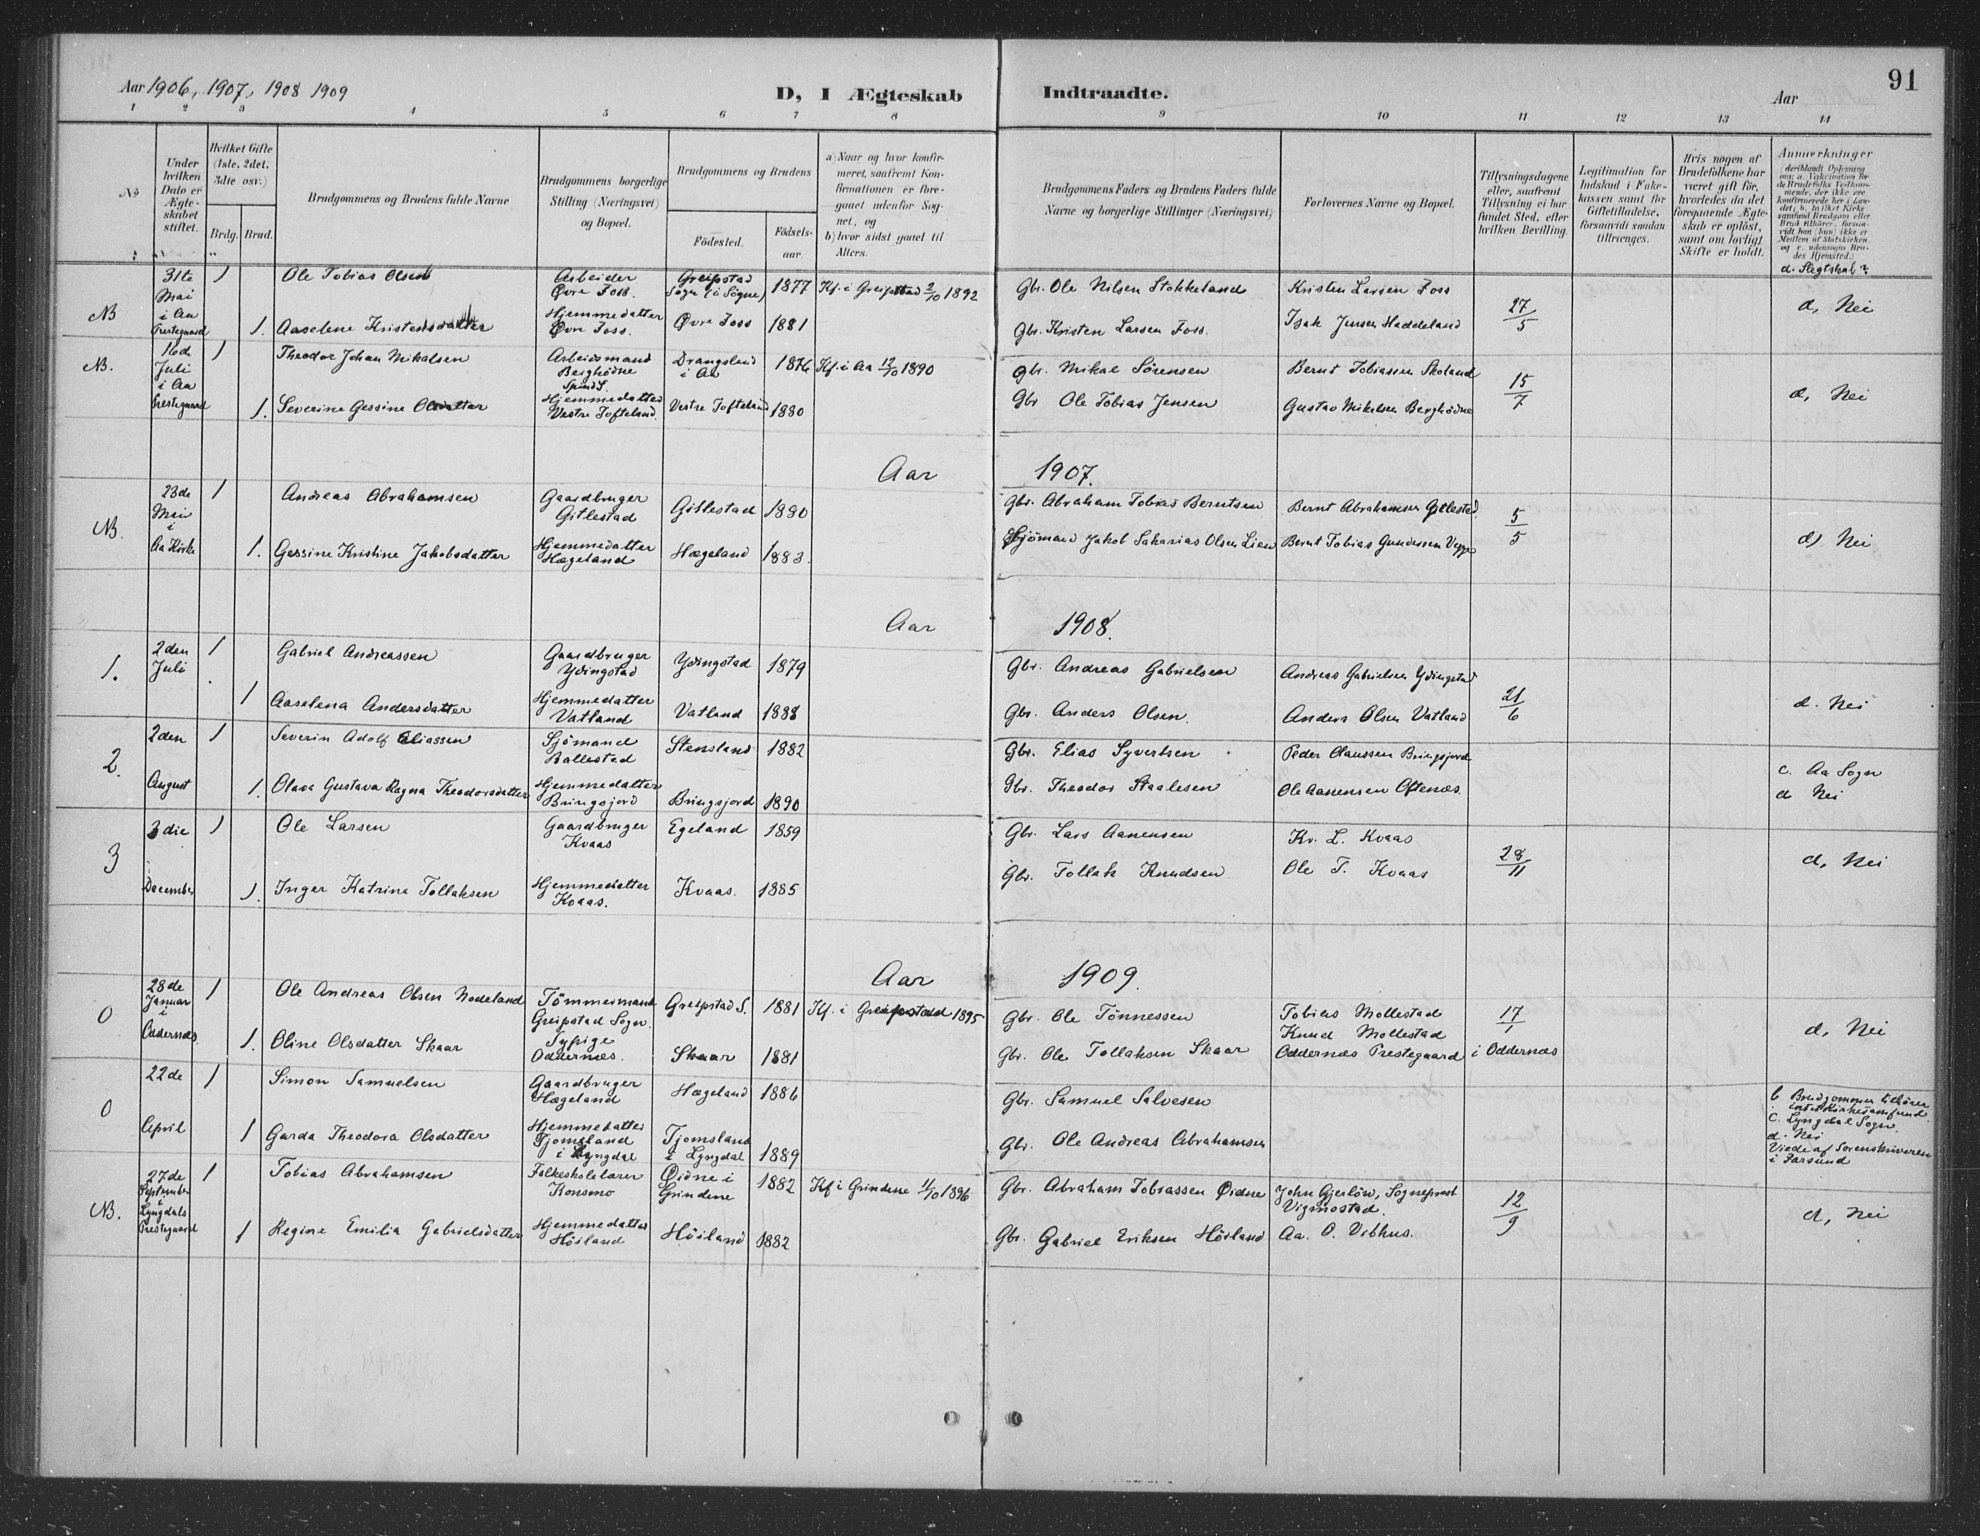 91
Aar 1906, 1907, 1908 1909 D, I Ægteskab Indtraadte. Aar
1 2 3 4 5 6 7 8 9 10 11 12 13 14
No
Under hvilken Dato er Ægteskabet stiftet.
Hvilket Gifte (1ste, 2det, 3die osv.)
Brdg. Brud.
Brudgommens og Brudens fulde Navne
Brudgommens borgerlige Stilling (Næringsvei) og Bopæl.
Brudgommens og Brudens
Fødested. Fødselsaar.
a) Naar og hvor konfirmeret, saafremt Konfirmationen er foregaaet udenfor Sognet, og
b) hvor sidst gaaet til Alters.
Brudgommens Faders og Brudens Faders fulde Navne og borgerlige Stillinger (Næringsvei)
Forlovernes Navne og Bopæl.
Tillysningsdagene eller, saafremt Tillysning ei har fundet Sted, efter hvilken Bevilling.
Legitimation for Indskud i Enkekassen samt for Giftetilladelse, forsaavidt saadan tiltrænges.
Hvis nogen af Brudefolkene har været gift før, hvorledes da det foregaaende Ægteskab er opløst, samt om lovligt Skifte er holdt.
Anmerkninger
d. Slegtskab?
NB 31te Mai i Aa Prestegaard
1 Ole Tobias Olsen Arbeider Øvre Foss. Greipstad Sogn (i Søgne) 1877 Kf. i Greipstad 2/10 1892 Gbr. Ole Nilsen Stokkeland Kristen Larsen Foss
1. Aaselene Kristensdatter Hjemmedatter Øvre Foss. Øvre Foss 1881 Gbr. Kristen Larsen Foss. Isak Jensen Haddeland 27/5 d, Nei
NB. 16de Juli i Aa Prestegaard
1 Theodor Johan Mikalsen Arbeidsmand Berghødne Spind S. Drangsland i Aa 1876 Kf. i Aa 12/10 1890 Gbr. Mikal Sørensen Bernt Tobiassen Skoland
1. Severine Gessine Olsdatter Hjemmedatter Vestre Tofteland. Vestre Tofteland 1880 Gbr Ole Tobias Jensen Gustav Mikalsen Berghødne 15/7 d, Nei
Aar 1907.
NB. 23de Mai i Aa Kirke
1 Andreas Abrahamsen Gaardbruger Gitlestad Gitlestad 1880 Gbr. Abraham Tobias Berntsen Bernt Abrahamsen Gitlestad
1. Gessine Kristine Jakobsdatter Hjemmedatter Hægeland Hægeland 1883. Sjømand Jakob Sakarias Olsen Lien Bernt Tobias Gundersen 5/5 d, Nei
Aar 1908.
1. 2den Juli
1 Gabriel Andreassen Gaardbruger Ydingstad Ydingstad 1879 Gbr. Andreas Gabrielsen Andreas Gabrielsen Ydingstad
1 Aaselena Andersdatter Hjemmedatter Vatland Vatland 1888 Gbr. Anders Olsen. Anders Olsen Vatland 21/6 d. Nei
2. 2den August
1 Severin Adolf Eliassen Sjømand Ballestad Stensland 1882 Gbr. Elias Syvertsen Peder Claussen Bringsjord
1. Olava Gustava Ragna Theodorsdatter Hjemmedatter Bringsjord Bringsjord 1890 Gbr. Theodor Staalesen Ole Aanensen Oftenæs. c. Aa Sogn d Nei
3 3die December
1 Ole Larsen Gaardbruger Kvaas Egeland 1859 Gbr. Lars Aanensen Kr. L. Kvaas
1. Inger Katrine Tollaksen Hjemmedatter Kvaas. Kvaas. 1885 Gbr. Tollak Knudsen Ole T. Kvaas 28/11 d, Nei
Aar 1909.
0 28de Januar i Oddernæs.
1 Ole Andreas Olsen Nodeland Tømmermand Greipstad Sogn Greipstad S. 1881 Kf. i Greipstad 1895 Gbr. Ole Tønnessen Tobias Mollestad Knud Mollestad
1. Oline Olsdatter Skaar Sypige Oddernæs. Skaar 1881 Gbr. Ole Tollaksen Skaar Oddernæs Prestegaard i Oddernæs 17/1 d, Nei
0 22de April
1 Simon Samuelsen Gaardbruger Hægeland Hægeland 1886 Gbr. Samuel Salvesen
1 Garda Theodora Olsdatter Hjemmedatter Tjomsland i Lyngdal Tjomsland i Lyngdal 1889 Gbr. Ole Andreas Abrahamsen
b Brudgommen tilhører intet Kirkesamfund.
c. Lyngdal Sogn.
d. Nei
Viede af Sorenskriveren i Farsund
NB. 27de September i Lyngdals Prestegaard
1 Tobias Abrahamsen Folkeskolelærer Konsmo Øidne i Grindene 1882 Kf i Grindene 11/10 1896 Gbr. Abraham Tobiassen Øidne John Gjerløw, Sogneprest Vigmostad.
1 Regine Emilia Gabrielsdatter Hjemmedatter Høiland Høiland 1882 Gbr. Gabriel Eriksen Høiland Aa. O. Vibhus. 12/9 d, Nei